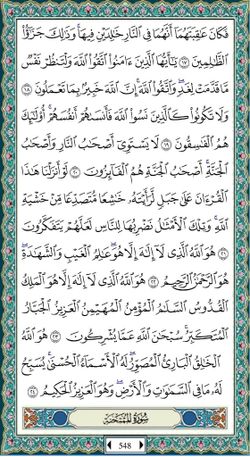 فَكَانَ عَٰقِبَتَهُمَآ أَنَّهُمَا فِي ٱلنَّارِ خَٰلِدَيۡنِ فِيهَاۚ وَذَٰلِكَ جَزَٰٓؤُاْ
ٱلظَّٰلِمِينَ ١٧ يَٰٓأَيُّهَا ٱلَّذِينَ ءَامَنُواْ ٱتَّقُواْ ٱللَّهَ وَلۡتَنظُرۡ نَفۡسٞ
مَّا قَدَّمَتۡ لِغَدٖۖ وَٱتَّقُواْ ٱللَّهَۚ إِنَّ ٱللَّهَ خَبِيرُۢ بِمَا تَعۡمَلُونَ ١٨
وَلَا تَكُونُواْ كَٱلَّذِينَ نَسُواْ ٱللَّهَ فَأَنسَىٰهُمۡ أَنفُسَهُمۡۚ أُوْلَٰٓئِكَ
هُمُ ٱلۡفَٰسِقُونَ ١٩ لَا يَسۡتَوِيٓ أَصۡحَٰبُ ٱلنَّارِ وَأَصۡحَٰبُ
ٱلۡجَنَّةِۚ أَصۡحَٰبُ ٱلۡجَنَّةِ هُمُ ٱلۡفَآئِزُونَ ٢٠ لَوۡ أَنزَلۡنَا هَٰذَا
ٱلۡقُرۡءَانَ عَلَىٰ جَبَلٖ لَّرَأَيۡتَهُۥ خَٰشِعٗا مُّتَصَدِّعٗا مِّنۡ خَشۡيَةِ
ٱللَّهِۚ وَتِلۡكَ ٱلۡأَمۡثَٰلُ نَضۡرِبُهَا لِلنَّاسِ لَعَلَّهُمۡ يَتَفَكَّرُونَ
٢١ هُوَ ٱللَّهُ ٱلَّذِي لَآ إِلَٰهَ إِلَّا هُوَۖ عَٰلِمُ ٱلۡغَيۡبِ وَٱلشَّهَٰدَةِۖ
هُوَ ٱلرَّحۡمَٰنُ ٱلرَّحِيمُ ٢٢ هُوَ ٱللَّهُ ٱلَّذِي لَآ إِلَٰهَ إِلَّا هُوَ ٱلۡمَلِكُ
ٱلۡقُدُّوسُ ٱلسَّلَٰمُ ٱلۡمُؤۡمِنُ ٱلۡمُهَيۡمِنُ ٱلۡعَزِيزُ ٱلۡجَبَّارُ
ٱلۡمُتَكَبِّرُۚ سُبۡحَٰنَ ٱللَّهِ عَمَّا يُشۡرِكُونَ ٢٣ هُوَ ٱللَّهُ
ٱلۡخَٰلِقُ ٱلۡبَارِئُ ٱلۡمُصَوِّرُۖ لَهُ ٱلۡأَسۡمَآءُ ٱلۡحُسۡنَىٰۚ يُسَبِّحُ
لَهُۥ مَا فِي ٱلسَّمَٰوَٰتِ وَٱلۡأَرۡضِۖ وَهُوَ ٱلۡعَزِيزُ ٱلۡحَكِيمُ ٢٤
سُورَةُ المُمۡتَحنَةِ
548